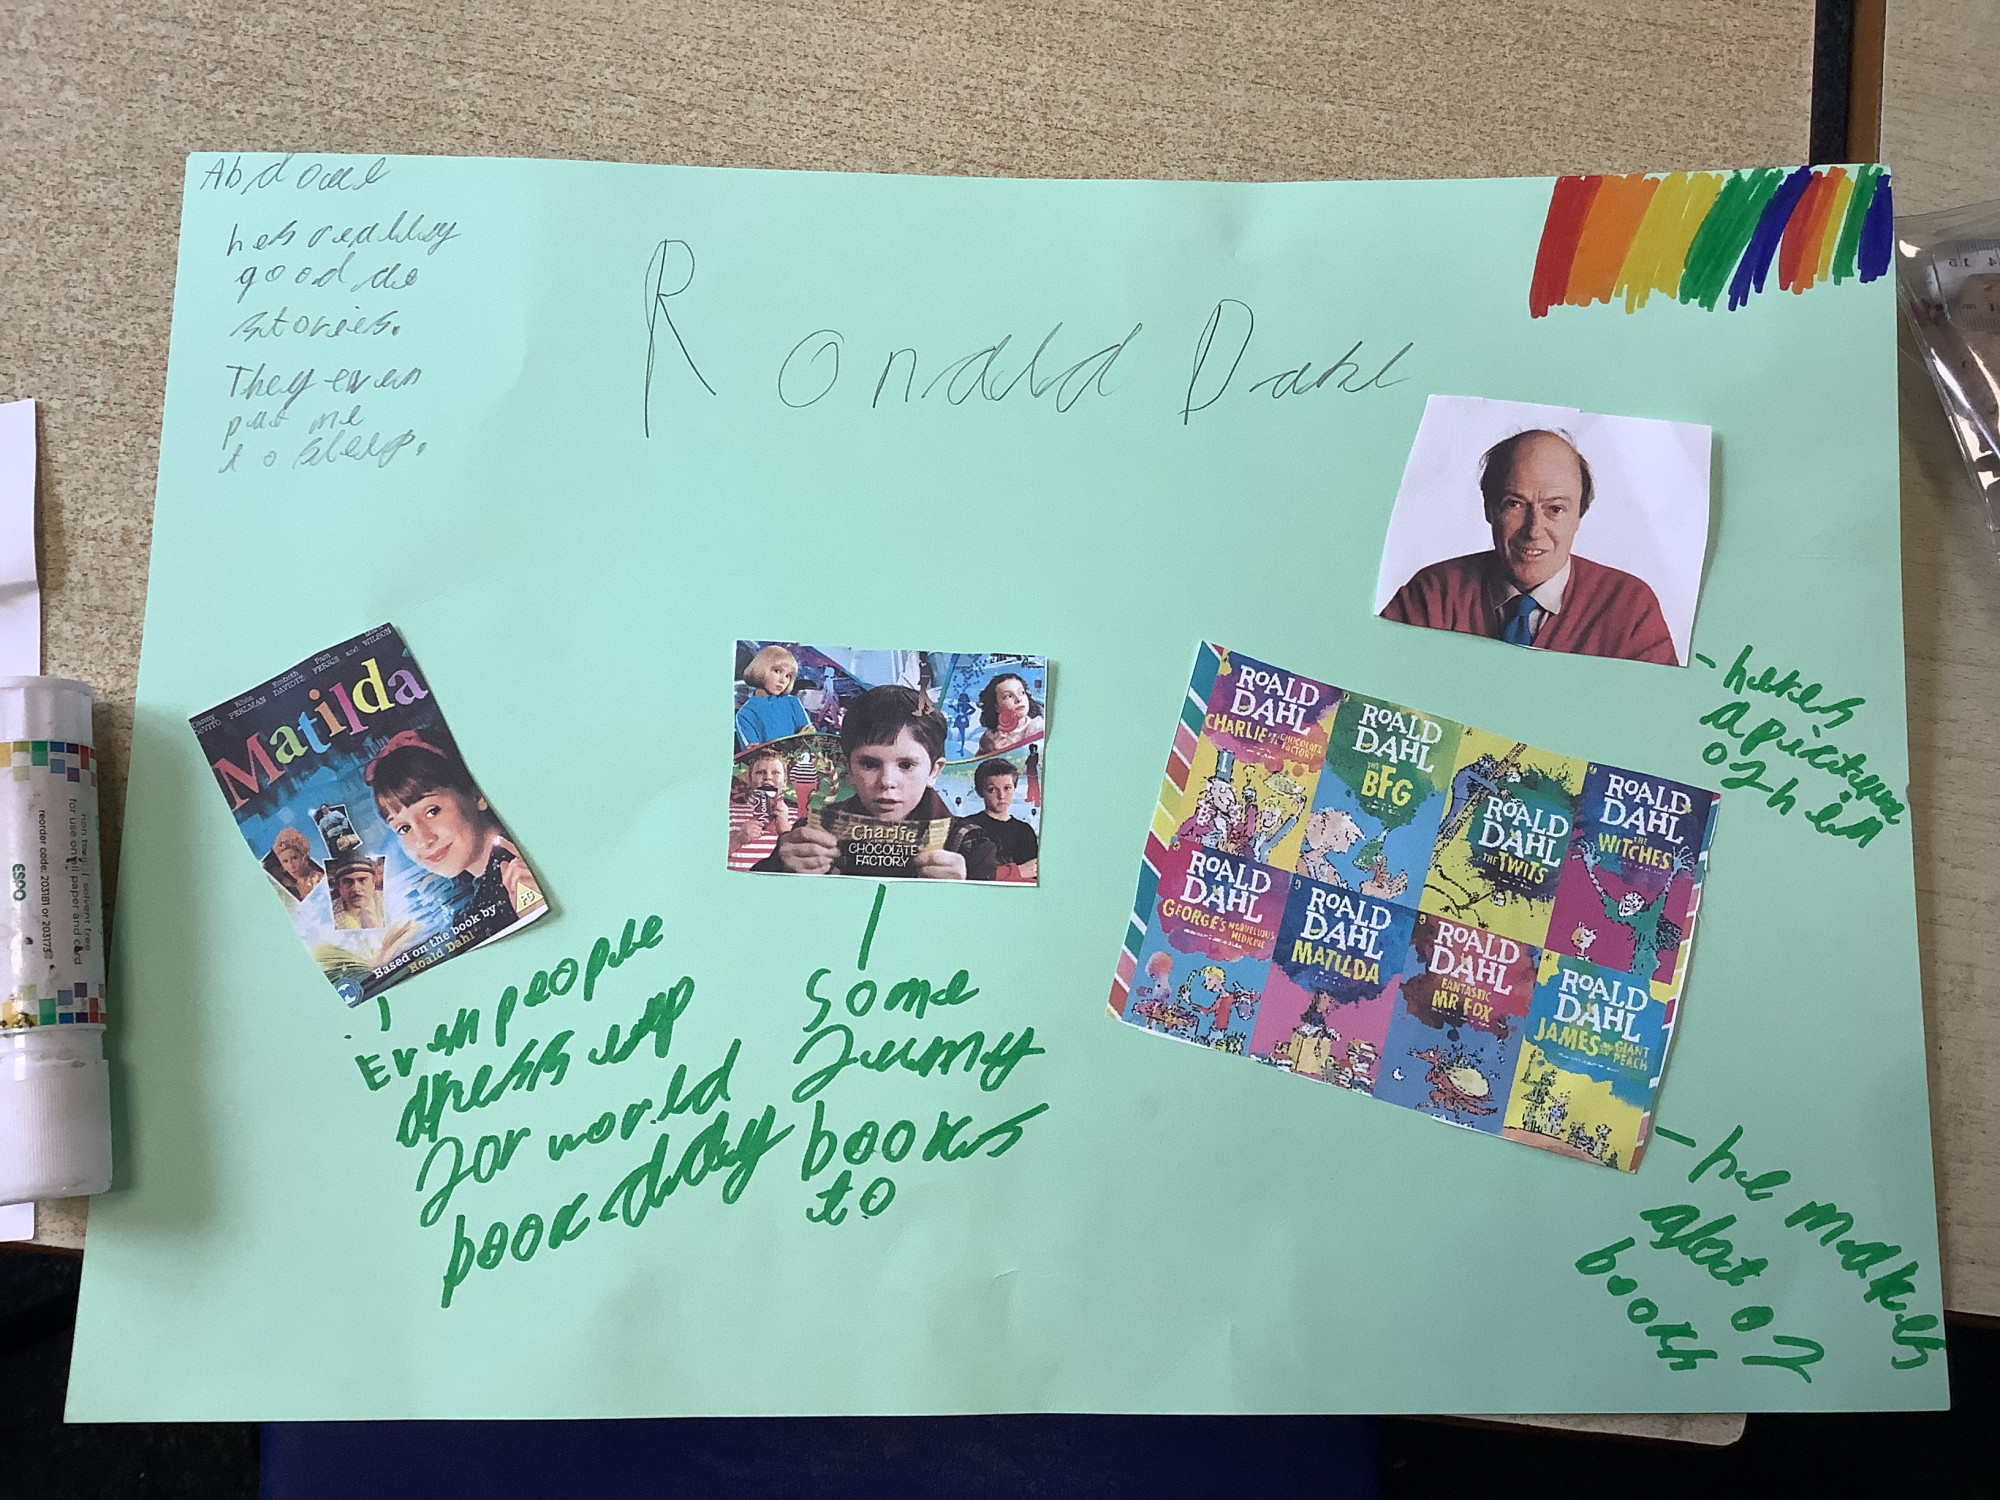 he's really
good at
stories.
They even
put me
to sleep.
Ronald Dahl
Danny DEVITO Rhea PERLMAN Embeth DAVIDTZ Pam FERRIS and Mara WILSON
Matilda
PG
Based on the book by
Roald Dahl
Even people
dress up
for world
book day
Charlie
AND THE
CHOCOLATE
FACTORY
Some
funny
books
to
heres
a picture
of him
ROALD
DAHL
CHARLIE AND THE CHOCOLATE FACTORY
ROALD
DAHL
THE
BFG
ROALD
DAHL
THE TWITS
ROALD
DAHL
THE
WITCHES
ROALD
DAHL
GEORGE'S MARVELLOUS MEDICINE
ROALD
DAHL
MATILDA
ROALD
DAHL
FANTASTIC
MR FOX
ROALD
DAHL
JAMES AND THE GIANT PEACH
he makes
alot of
books
non toxic / solvent free
for use on all paper and card
reorder code: 203181 or 203173
ESPO